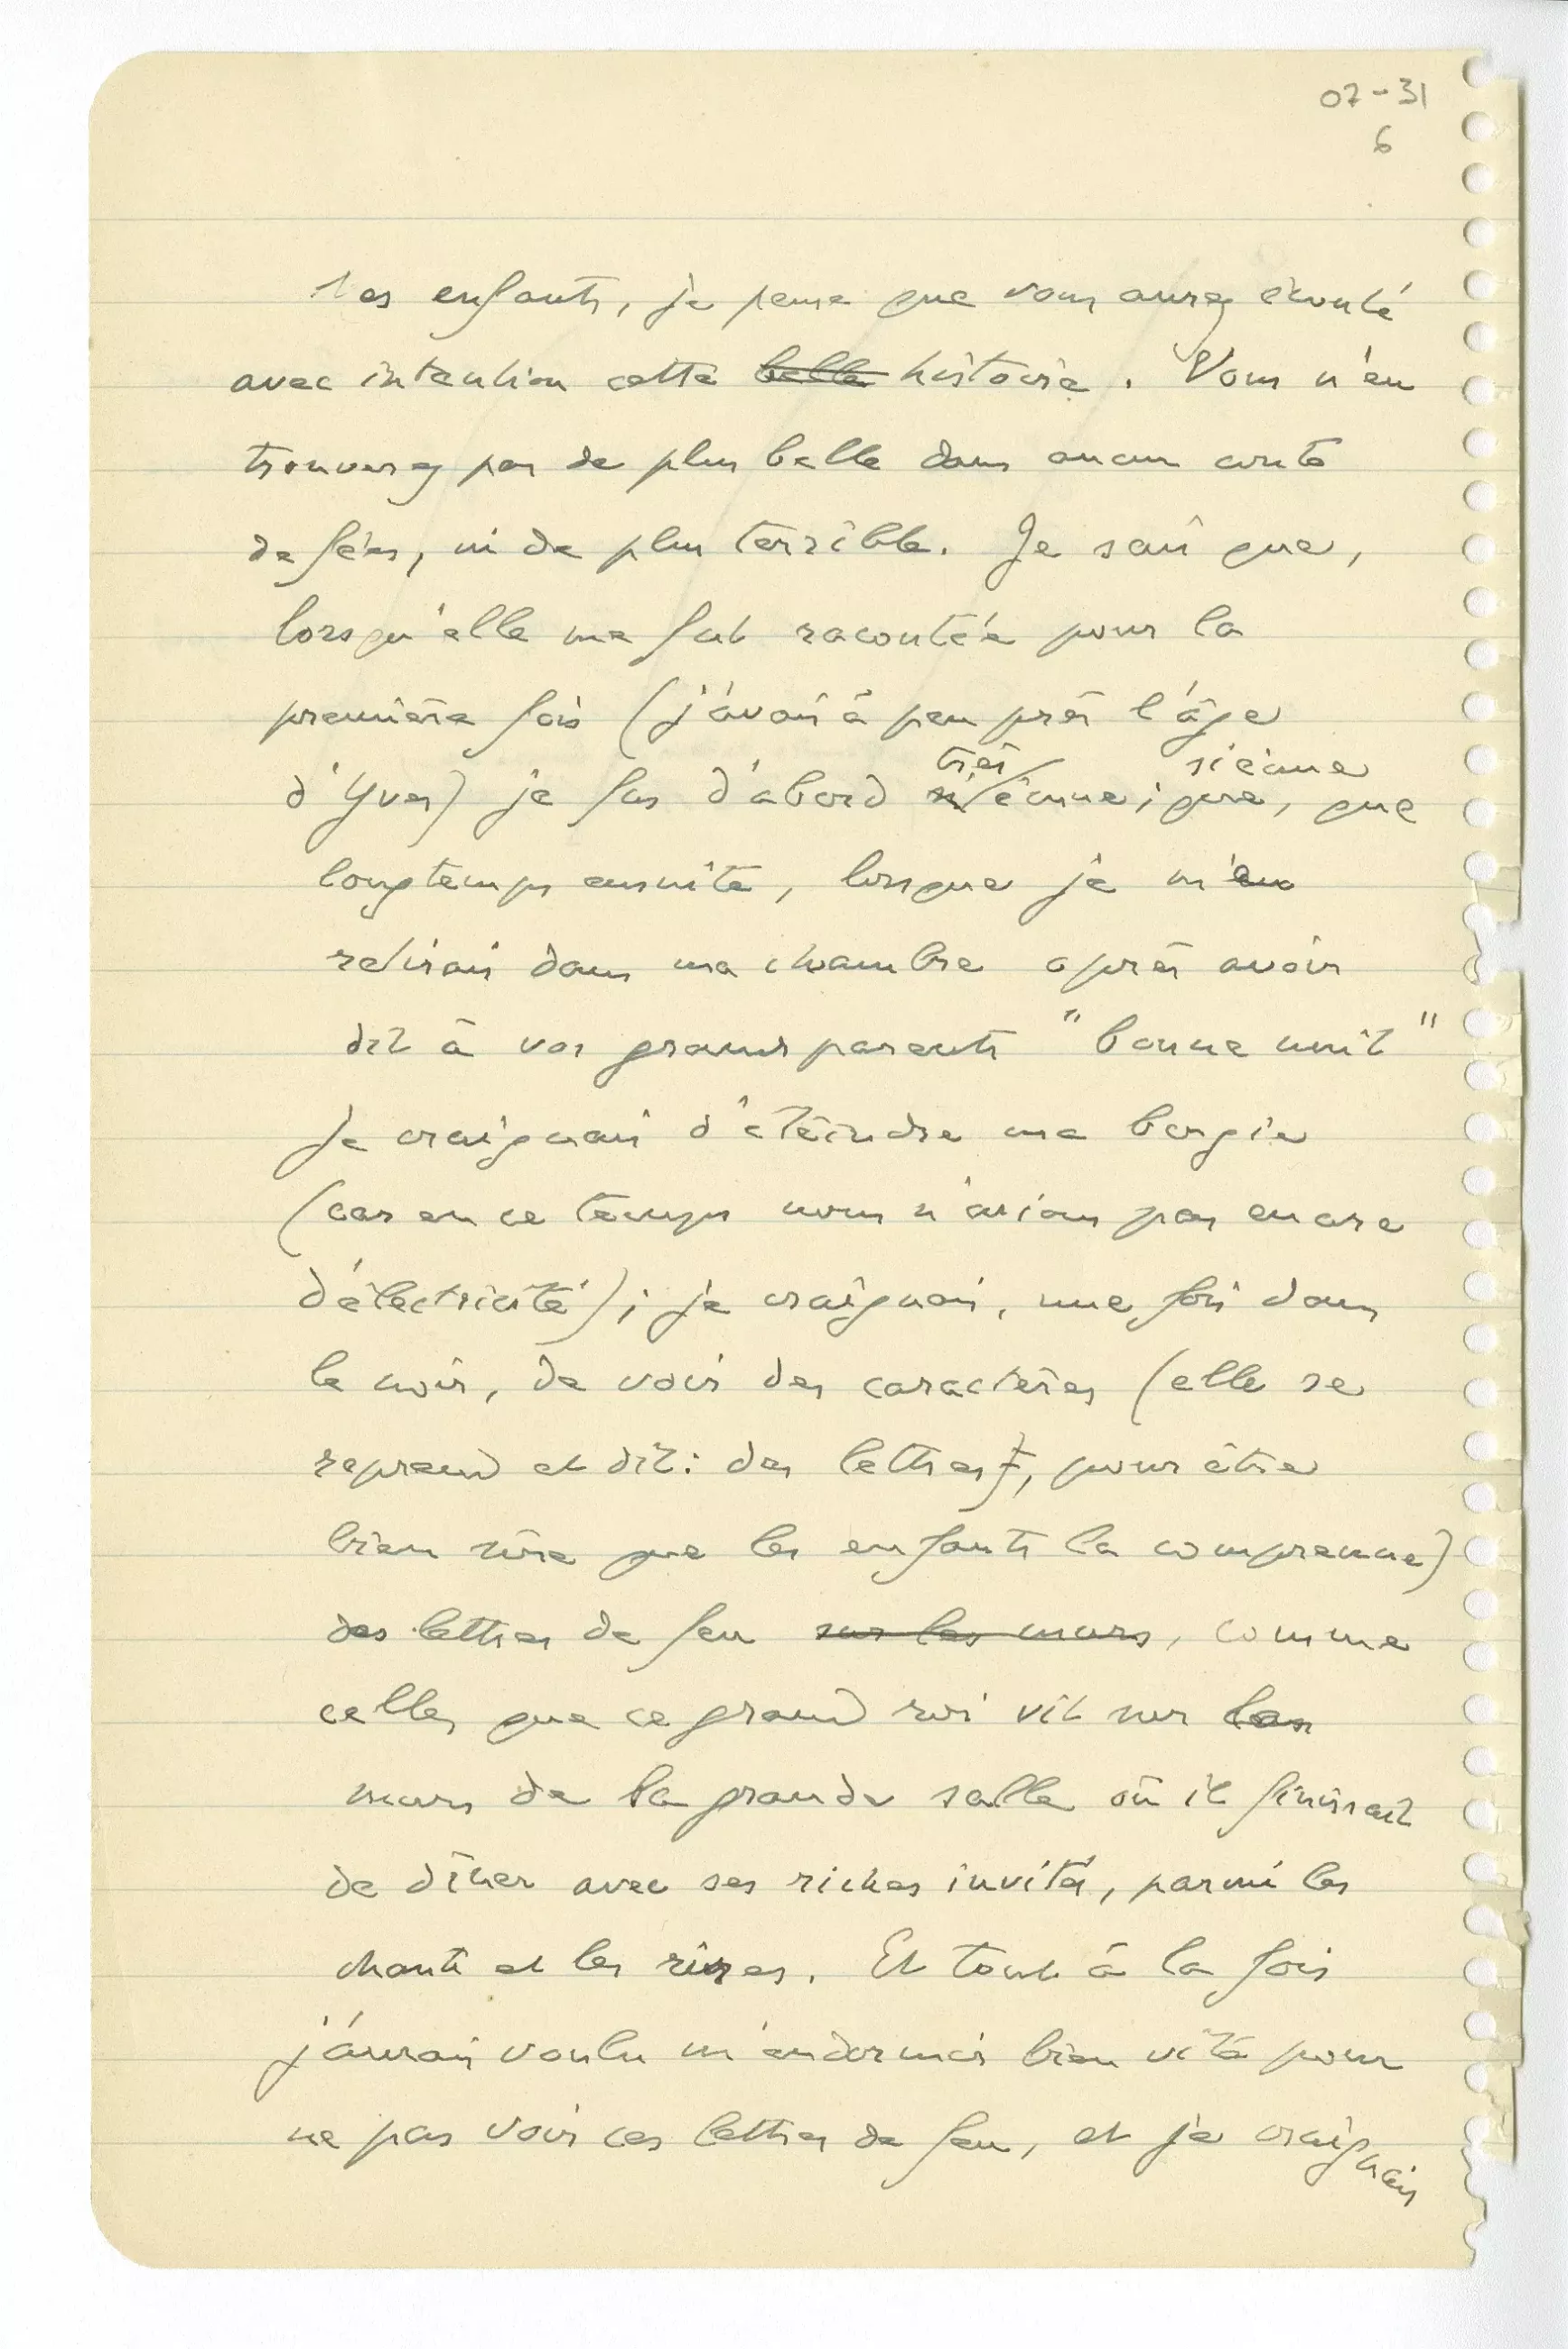 07-31
6
enfants, je pense que vous aurez écouté
avec intention cette belle histoire. Vous n'en
trouverez pas de plus belle dans aucun conte
de fées, ni de plus terrible. Je sais que,
lorsqu'elle me fut racontée pour la
première fois (j'avais à peu près l'âge
très si émue
d'Yves) je fus d'abord si émue ; que, que
longtemps ensuite, lorsque je m'en
retirais dans ma chambre après avoir
dit à vos grands parents "bonne nuit"
je craignais d'éteindre ma bougie
(car en ce temps nous n'avions pas encore
d'électricité) ; je craignais, une fois dans
le noir, de voir des caractères (elle se
reprend et dit : des lettres), pour être
bien sûre que les enfants la comprenne)
des lettres de feu sur les murs, comme
celles que ce grand roi vit sur les
murs de la grande salle où il finissait
de dîner avec ses riches invités, parmi les
chants et les rires. Et tout à la fois
j'aurais voulu m'endormir bien vite pour
ne pas voir ces lettres de feu, et je craignais